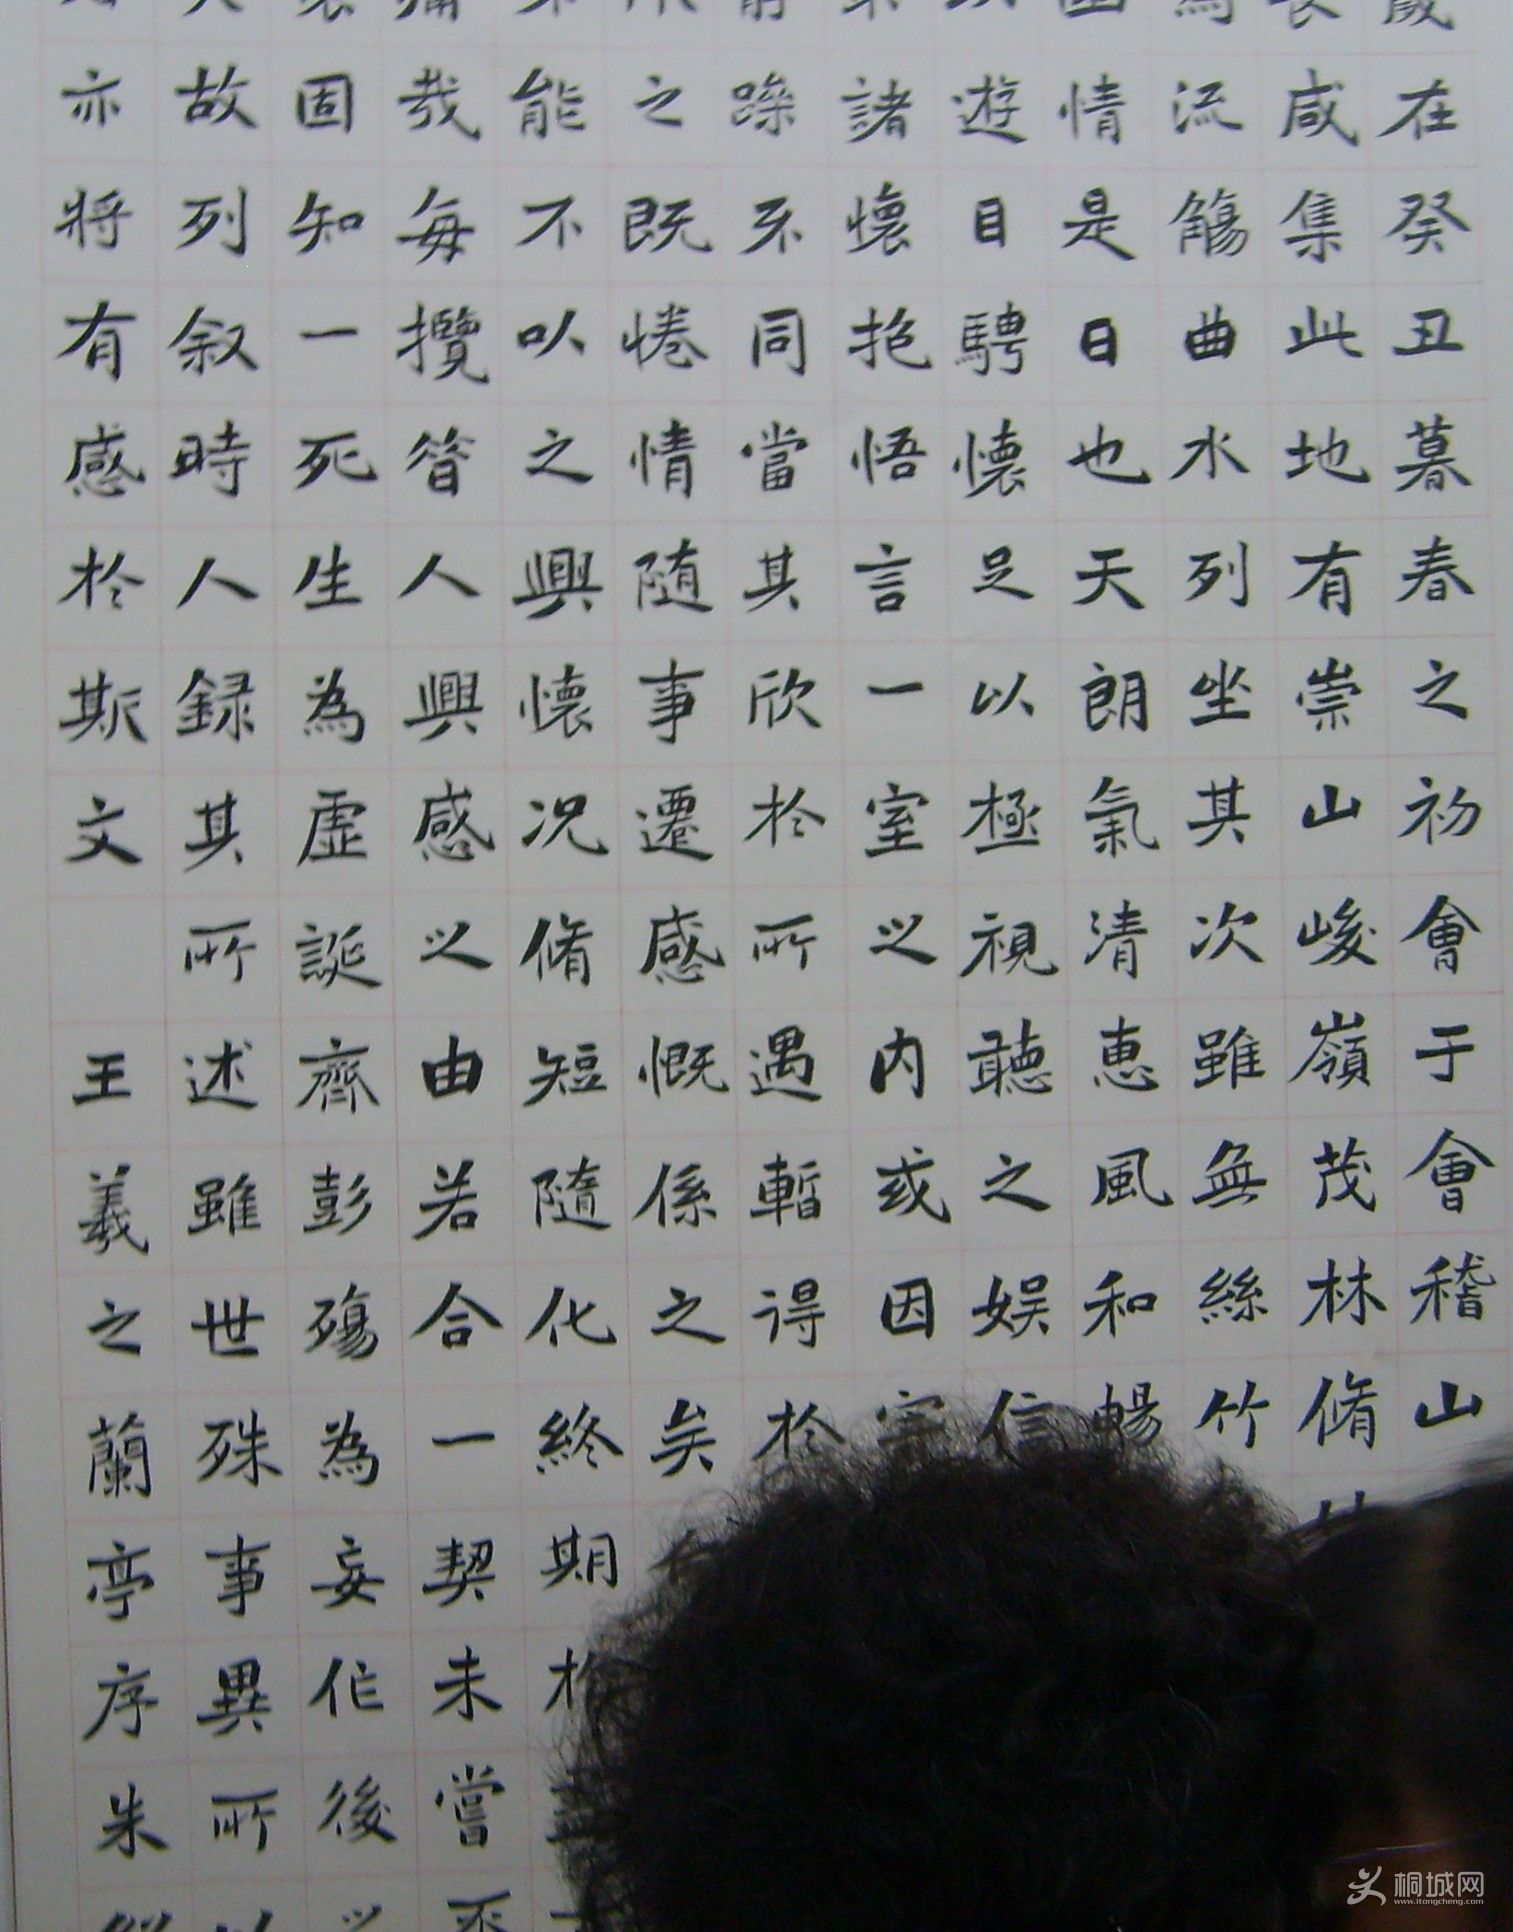 在癸丑暮春之初會于會稽山
咸集此地有崇山峻嶺茂林脩
流觴曲水列坐其次雖無絲竹
情是日也天朗氣清惠風和暢
遊目騁懷足以極視聽之娱信
諸懷抱悟言一室之內或因
躁不同當其欣於所遇暫得於
之既惓情随事遷感慨係之矣
能不以之興懷况脩短隨化終期
哉每攬昝人興感之由若合一契未嘗
固知一死生為虛誕齊彭殤為妄作後
故列叙時人録其所述雖世殊事異所以
亦將有感於斯文 王羲之蘭亭序朱
桐城网
www.itongcheng.com